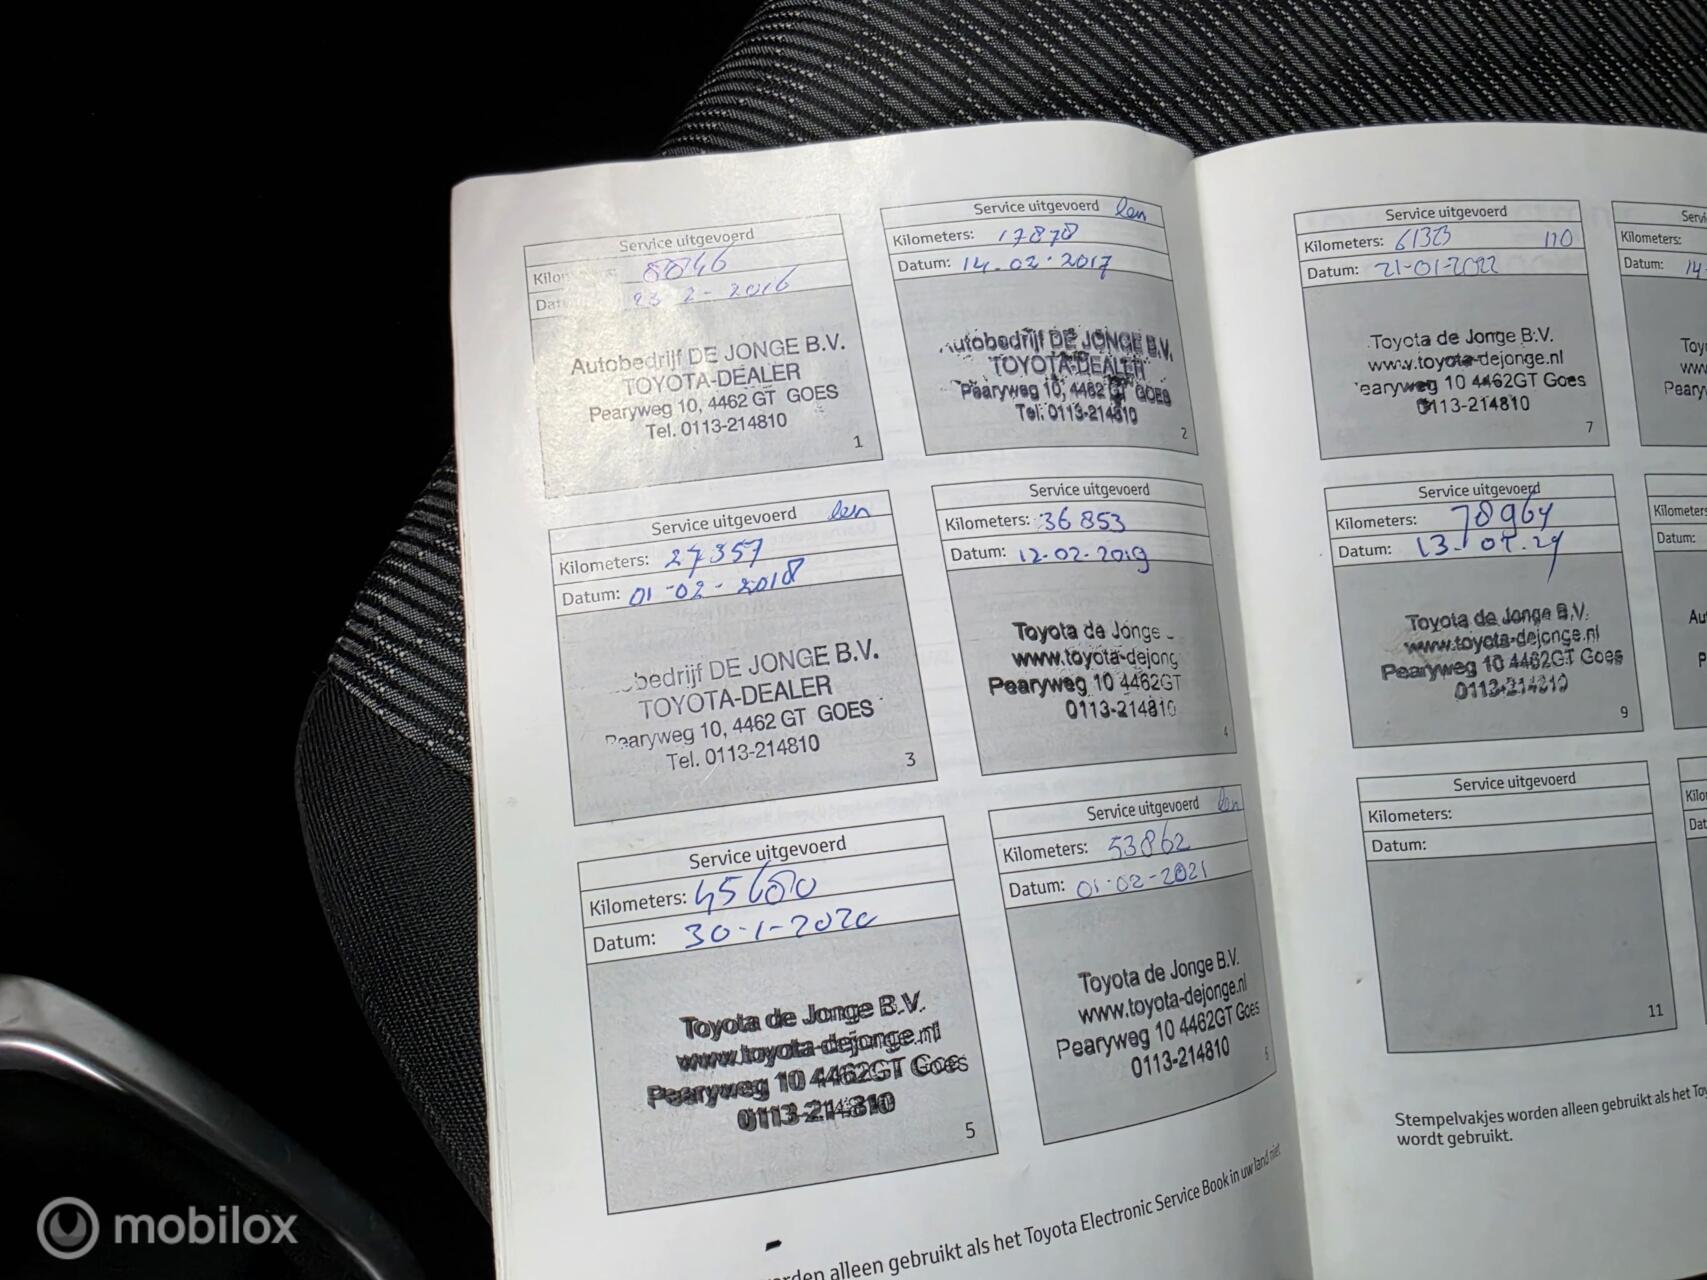 Service uitgevoerd
Kilo
8846
Dat
23 2 - 2016
Autobedrijf DE JONGE B.V.
TOYOTA-DEALER
Pearyweg 10, 4462 GT GOES
Tel. 0113-214810
1
Service uitgevoerd
Kilometers: 17878
Datum: 14-02-2017
Autobedrijf DE JONGE B.V.
TOYOTA-DEALER
Pearyweg 10, 4462 GT GOES
Tel. 0113-214810
2
Service uitgevoerd
Kilometers: 27357
Datum: 01-02-2018
bedrijf DE JONGE B.V.
TOYOTA-DEALER
Pearyweg 10, 4462 GT GOES
Tel. 0113-214810
3
Service uitgevoerd
Kilometers: 36853
Datum: 12-02-2019
Toyota de Jonge
www.toyota-dejong
Pearyweg 10 4462GT
0113-214810
4
Service uitgevoerd
Kilometers: 45600
Datum: 30-1-2020
Toyota de Jonge B.V.
www.toyota-dejonge.nl
Pearyweg 10 4462GT Goes
0113-214810
5
Service uitgevoerd
Kilometers: 53862
Datum: 01-02-2021
Toyota de Jonge B.V.
www.toyota-dejonge.nl
Pearyweg 10 4462GT Goes
0113-214810
6
orden alleen gebruikt als het Toyota Electronic Service Book in uw land niet
Service uitgevoerd
Kilometers: 110
Datum: 21-01-2022
Toyota de Jonge B.V.
www.toyota-dejonge.nl
earyweg 10 4462GT Goes
0113-214810
7
Servi
Kilometers:
Datum: 14-
Toy
ww
Peary
Service uitgevoerd
Kilometers: 78964
Datum: 13-04-24
Toyota de Jonge B.V.
www.toyota-dejonge.nl
Pearyweg 10 4462GT Goes
0113-214810
9
Kilometers
Datum:
Au
P
Service uitgevoerd
Kilometers:
Datum:
11
Kilo
Dat
Stempelvakjes worden alleen gebruikt als het Toy
wordt gebruikt.
mobilox